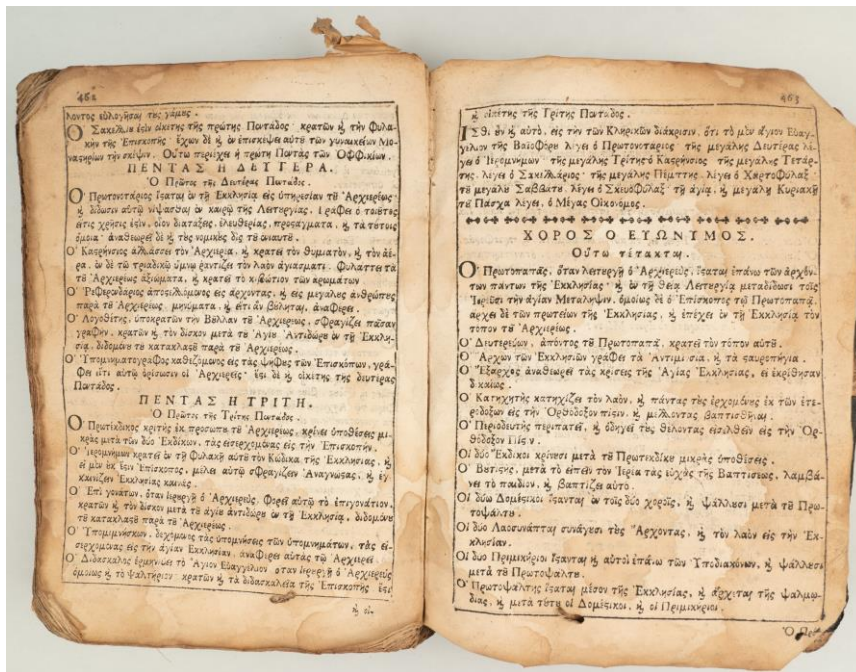 462
λοντος εὐλογῆσαι τοὺς γάμους.
Ὁ Σακελλίου ἐστὶν οἰκέτης τῆς πρώτης Πεντάδος· κρατῶν ἢ τὴν Φυλα-
κὴν τῆς Ἐπισκοπῆς. ἔχων δὲ ἢ ἐν ἐπισκέψει αὐτοῦ τῶν γυναικείων Μο-
ναστηρίων τὴν σκέψιν. Οὕτω περιέχει ἡ πρώτη Πεντὰς τῶν Ὀφφικίων.
ΠΕΝΤΑΣ Η ΔΕΥΤΕΡΑ.
Ὁ Πρῶτος τῆς Δευτέρας Πεντάδος.
Ὁ Πρωτονοτάριος ἵσταται ἐν τῇ Ἐκκλησίᾳ εἰς ὑπηρεσίαν τοῦ Ἀρχιερέως,
ἢ δίδωσιν αὐτῷ νίψασθαι ἐν καιρῷ τῆς Λειτουργίας. Γράφει ὁ τοιοῦτος
εἴτις χρήσις ἐστὶν, οἷον διατάξεις, ἐλευθερίας, προστάγματα, ἢ τὰ τούτοις
ὅμοια· ἀναθεωρεῖ δὲ ἢ τοὺς νομικοὺς δὶς τοῦ ἐνιαυτοῦ.
Ὁ Καστρήνσιος ἀλλάσσει τὸν Ἀρχιερέα, ἢ κρατεῖ τὸν θυμιατὸν, ἢ τὸν ἀέ-
ρα. ἐν δὲ τῷ τριαδικῷ ὕμνῳ ῥαντίζει τὸν λαὸν ἁγιάσματι. Φυλάττει τὰ
τοῦ Ἀρχιερέως ἀξιώματα, ἢ κρατεῖ τὸ κιβώτιον τῶν ἀρωμάτων
Ὁ Ῥεφερενδάριος ἀποστελλόμενος εἰς ἄρχοντας, ἢ εἰς μεγάλους ἀνθρώπους
παρὰ τοῦ Ἀρχιερέως μηνύματα, ἢ εἴτι ἂν βούληται, ἀναφέρει.
Ὁ Λογοθέτης, ὑποκρατῶν τὴν Βούλλαν τοῦ Ἀρχιερέως, σφραγίζει πᾶσαν
γραφὴν. κρατῶν ἢ τὸν δίσκον μετὰ τοῦ Ἁγίου Ἀντιδώρου ἐν τῇ Ἐκκλη-
σίᾳ, διδομένου τοῦ κατακλαστοῦ παρὰ τοῦ Ἀρχιερέως.
Ὁ Ὑπομνηματογράφος καθεζόμενος εἰς τὰς ψήφους τῶν Ἐπισκόπων, γρά-
φει εἴτι αὐτῷ ὁρίσωσιν οἱ Ἀρχιερεῖς· ἔτι δὲ ἢ οἰκέτης τῆς δευτέρας
Πεντάδος.
ΠΕΝΤΑΣ Η ΤΡΙΤΗ.
Ὁ Πρῶτος τῆς Τρίτης Πεντάδος.
Ὁ Πρωτέκδικος κριτὴς ἐκ προσώπου τοῦ Ἀρχιερέως, κρίνει ὑποθέσεις μι-
κρὰς μετὰ τῶν δύο Ἐκδίκων, τὰς εἰσερχομένας εἰς τὴν Ἐπισκοπήν.
Ὁ Ἱερομνήμων κρατεῖ ἐν τῇ Φυλακῇ αὐτοῦ τὸν Κώδικα τῆς Ἐκκλησίας, ἢ
εἰ μὲν οὐκ ἔστιν Ἐπίσκοπος, μέλει αὐτῷ σφραγίζειν Ἀναγνώστας, ἢ ἐγ-
καινίζειν Ἐκκλησίας καινάς.
Ὁ Ἐπὶ γονάτων, ὅταν ἱερουργῇ ὁ Ἀρχιερεὺς, Φορεῖ αὐτῷ τὸ ἐπιγονάτιον,
κρατῶν ἢ τὸν δίσκον μετὰ τοῦ ἁγίου ἀντιδώρου ἐν τῇ Ἐκκλησίᾳ, διδομένου
τοῦ κατακλαστοῦ παρὰ τοῦ Ἀρχιερέως.
Ὁ Ὑπομιμνήσκων, δεχόμενος τὰς ὑπομνήσεις τῶν ὑπομνημάτων, τὰς εἰ-
σερχομένας εἰς τὴν ἁγίαν Ἐκκλησίαν, ἀναφέρει αὐτὰς τῷ Ἀρχιερεῖ.
Ὁ Διδάσκαλος ἑρμηνεύει τὸ Ἅγιον Εὐαγγέλιον ὅταν ἱερουργῇ ὁ Ἀρχιερεὺς
ὁμοίως ἢ τὸ Ψαλτήριον· κρατῶν ἢ τὰ διδασκαλεῖα τῆς Ἐπισκοπῆς ἔτι
ἢ οἰ.
463
ἢ οἰκέτης τῆς Τρίτης Πεντάδος.
Ἴσθι οὖν ἢ αὐτὸ, εἰς τὴν τῶν Κληρικῶν διάκρισιν, ὅτι τὸ μὲν ἅγιον Εὐαγ-
γέλιον τῆς Βαϊοφόρου λέγει ὁ Πρωτονοτάριος τῆς μεγάλης Δευτέρας λέ-
γει ὁ Ἱερομνήμων· τῆς μεγάλης Τρίτης ὁ Καστρήνσιος τῆς μεγάλης Τετάρ-
της. λέγει ὁ Σακελλάριος· τῆς μεγάλης Πέμπτης. λέγει ὁ Χαρτοφύλαξ·
τοῦ μεγάλου Σαββάτου. λέγει ὁ Σκευοφύλαξ· τῇ ἁγίᾳ, ἢ μεγάλῃ Κυριακῇ
τοῦ Πάσχα λέγει, ὁ Μέγας Οἰκονόμος.
ΧΟΡΟΣ Ο ΕΥΩΝΥΜΟΣ.
Οὕτω τέτακται.
Ὁ Πρωτοπαπᾶς, ὅταν λειτουργῇ ὁ Ἀρχιερεὺς, ἵσταται ἐπάνω τῶν ἀρχόν-
των πάντων τῆς Ἐκκλησίας· ἢ ἐν τῇ θείᾳ Λειτουργίᾳ μεταδίδωσι τοῖς
Ἱερεῦσι τὴν ἁγίαν Μετάληψιν, ὁμοίως δὲ ὁ Ἐπίσκοπος τῷ Πρωτοπαπᾷ.
ἄρχει δὲ τῶν πρωτείων τῆς Ἐκκλησίας, ἢ ἐπέχει ἐν τῇ Ἐκκλησίᾳ τὸν
τόπον τοῦ Ἀρχιερέως.
Ὁ Δευτερεύων, ἀπόντος τοῦ Πρωτοπαπᾶ, κρατεῖ τὸν τόπον αὐτοῦ.
Ὁ Ἄρχων τῶν Ἐκκλησιῶν γράφει τὰ Ἀντιμίσια, ἢ τὰ σαυροπήγια.
Ὁ Ἔξαρχος ἀναθεωρεῖ τὰς κρίσεις τῆς Ἁγίας Ἐκκλησίας, εἰ ἐκρίθησαν
δικαίως.
Ὁ Κατηχητὴς κατηχίζει τὸν λαὸν, ἢ πάντας τοὺς ἐρχομένους ἐκ τῶν ἑτε-
ροδόξων εἰς τὴν Ὀρθόδοξον πίστιν, ἢ μέλλοντας βαπτισθῆναι.
Ὁ Περιοδευτὴς περιπατεῖ, ἢ ὁδηγεῖ τοὺς θέλοντας εἰσελθεῖν εἰς τὴν Ὀρ-
θόδοξον Πίστιν.
Οἱ δύο Ἔκδικοι κρίνουσι μετὰ τοῦ Πρωτεκδίκου μικρὰς ὑποθέσεις.
Ὁ Βουτιστὴς, μετὰ τὸ εἰπεῖν τὸν Ἱερέα τὰς εὐχὰς τῆς Βαπτίσεως, λαμβά-
νει τὸ παιδίον, ἢ βαπτίζει αὐτό.
Οἱ δύω Δομέστικοι ἵστανται ἐν τοῖς δυσὶ χοροῖς, ἢ ψάλλουσι μετὰ τοῦ Πρω-
τοψάλτου.
Οἱ δύο Λαοσυνάπται συνάγουσι τοὺς Ἄρχοντας, ἢ τὸν λαὸν εἰς τὴν Ἐκ-
κλησίαν.
Οἱ δύο Πριμικήριοι ἵστανται ἢ αὐτοὶ ἐπάνω τῶν Ὑποδιακόνων, ἢ ψάλλουσι
μετὰ τοῦ Πρωτοψάλτου.
Ὁ Πρωτοψάλτης ἵσταται μέσον τῆς Ἐκκλησίας, ἢ ἄρχεται τῆς ψαλμῳ-
δίας, ἢ μετὰ τοῦτον οἱ Δομέστικοι, ἢ οἱ Πριμικήριοι.